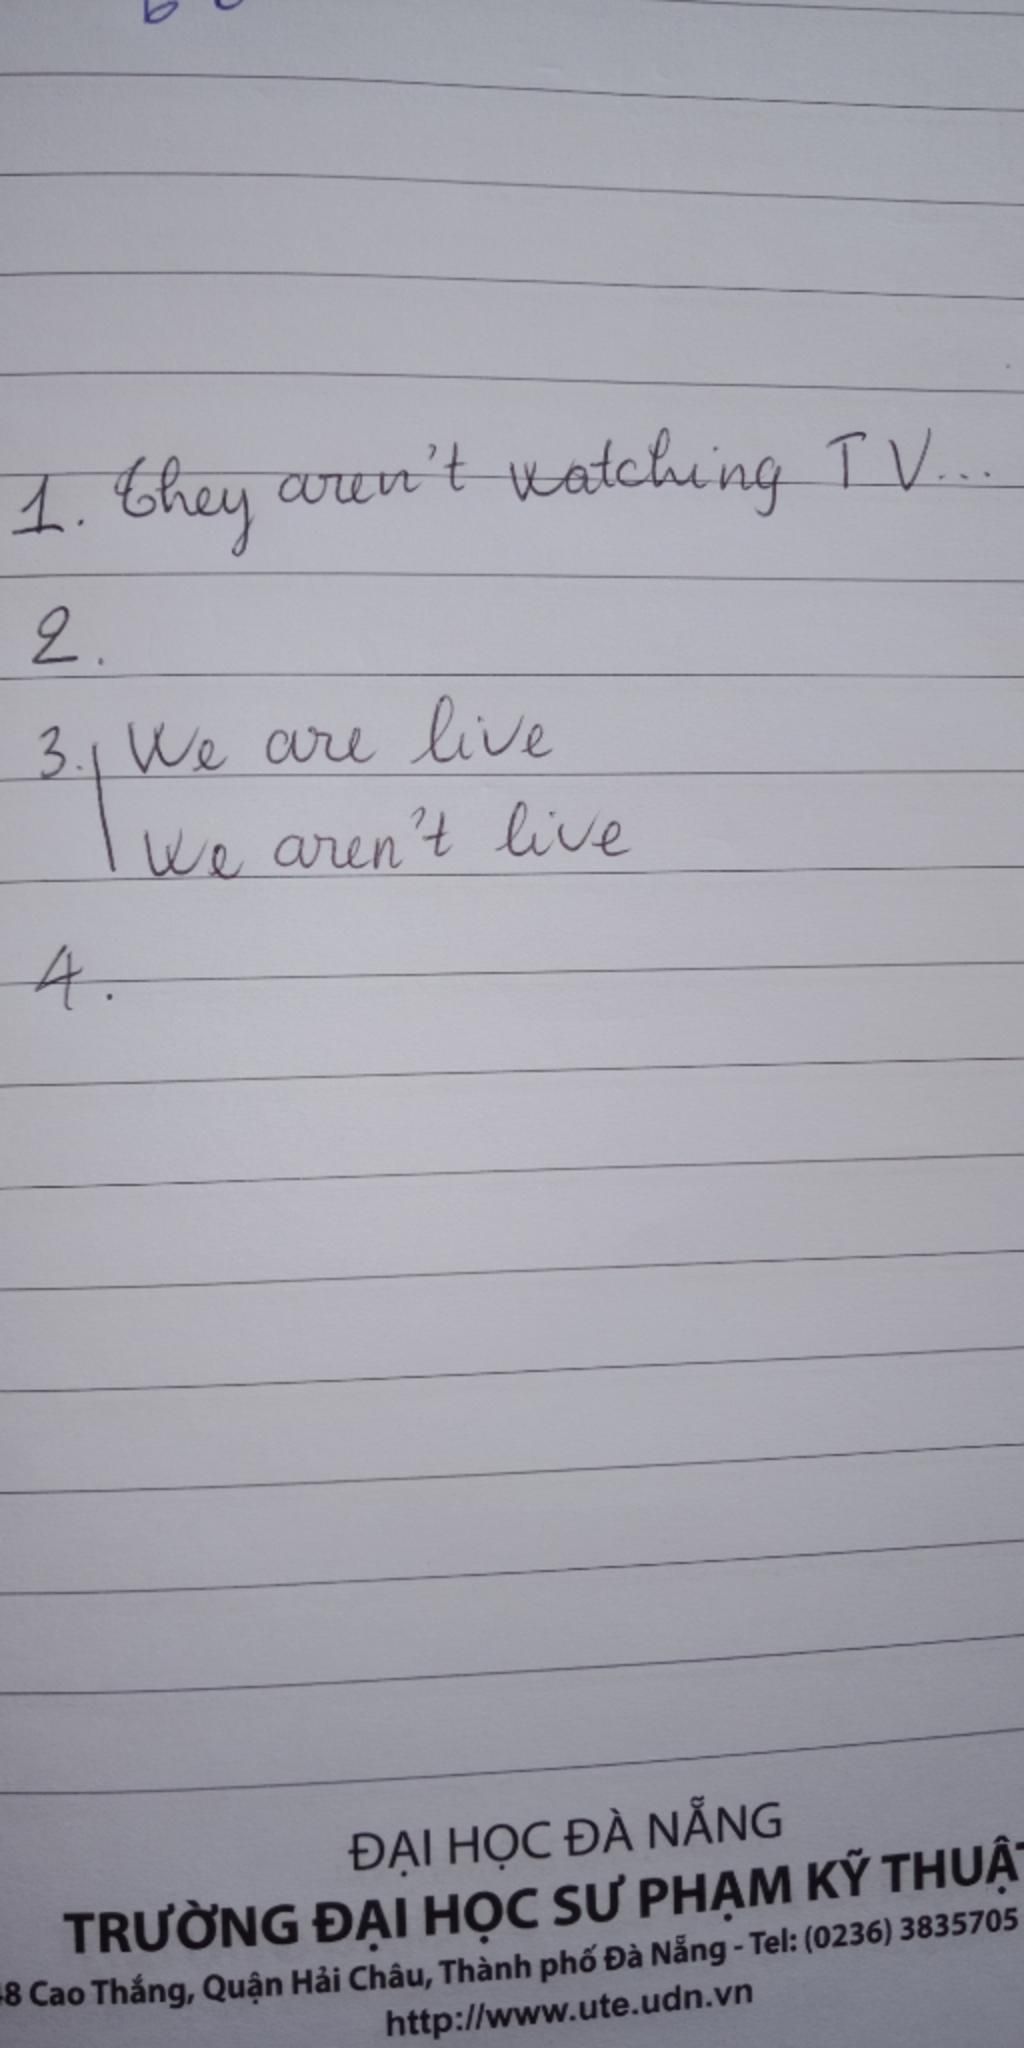 1. They aren't watching TV...
2.
3. We are live
We aren't live
4.
ĐẠI HỌC ĐÀ NẴNG
TRƯỜNG ĐẠI HỌC SƯ PHẠM KỸ THUẬT
48 Cao Thắng, Quận Hải Châu, Thành phố Đà Nẵng - Tel: (0236) 3835705
http://www.ute.udn.vn